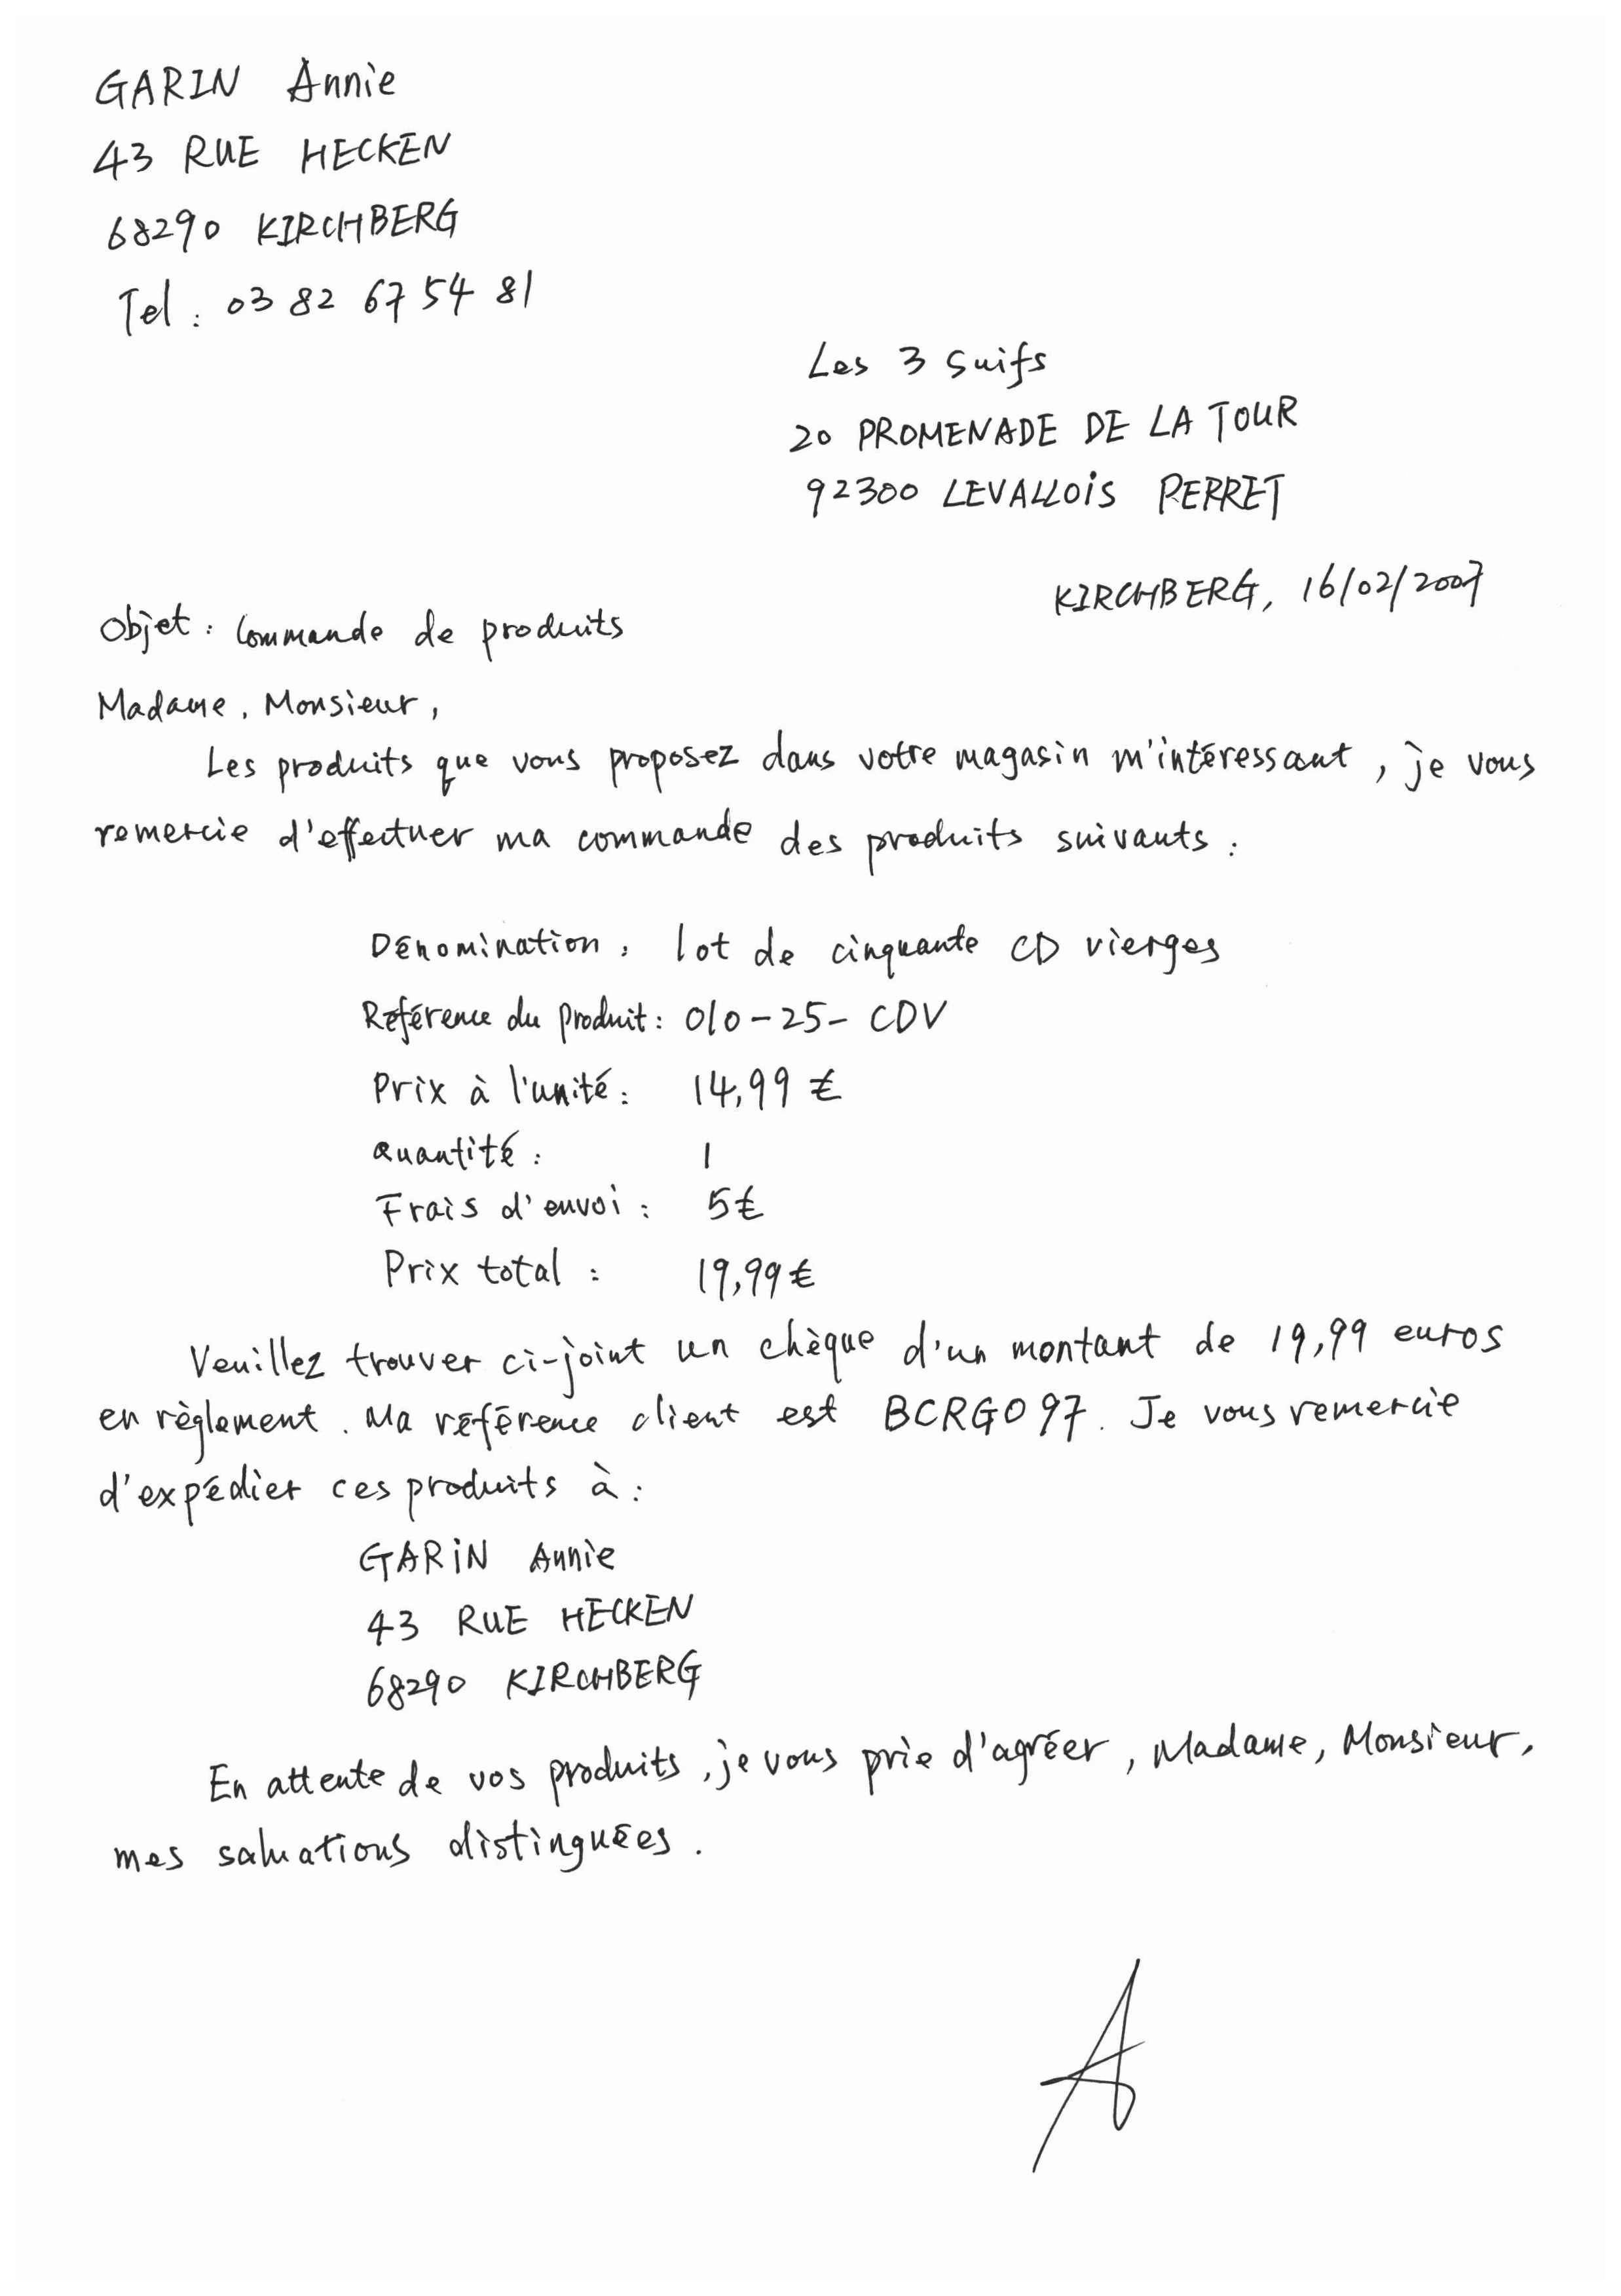 GARIN Annie
43 RUE HECKEN
68290 KIRCHBERG
Tel : 03 82 67 54 81
Les 3 suifs
20 PROMENADE DE LA TOUR
92300 LEVALLOIS PERRET
KIRCHBERG, 16/02/2007
Objet : Commande de produits
Madame, Monsieur,
Les produits que vous proposez dans votre magasin m'intéressant, je vous
remercie d'effectuer ma commande des produits suivants :
Dénomination : lot de cinquante CD vierges
Référence du produit : 010-25-CDV
Prix à l'unité : 14,99 €
Quantité : 1
Frais d'envoi : 5€
Prix total : 19,99€
Veuillez trouver ci-joint un chèque d'un montant de 19,99 euros
en règlement. Ma référence client est BCRGO97. Je vous remercie
d'expédier ces produits à :
GARIN Annie
43 RUE HECKEN
68290 KIRCHBERG
En attente de vos produits, je vous prie d'agréer, Madame, Monsieur,
mes saluations distinguées.
A